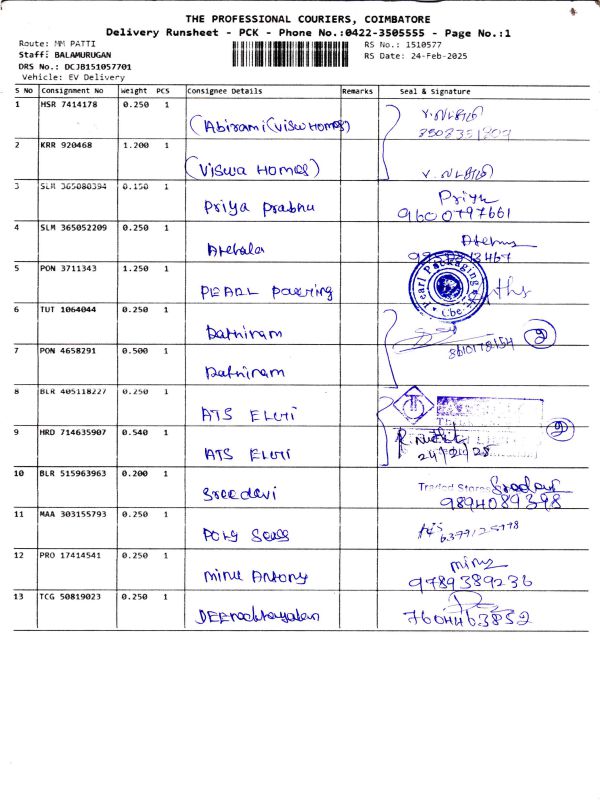 THE PROFESSIONAL COURIERS, COIMBATORE
Delivery Runsheet - PCK - Phone No.:0422-3505555 - Page No.:1
Route: MM PATTI
RS No.: 1510577
Staff: BALAMURUGAN
RS Date: 24-Feb-2025
DRS No.: DCJB151057701
Vehicle: EV Delivery
S No Consignment No Weight PCS Consignee Details Remarks Seal & Signature
1 HSR 7414178 0.250 1 (Abirami (Viswa Homes)
2 KRR 920468 1.200 1 (Viswa Homes)
3 SLM 365080394 0.150 1 Priya Prabhu Priya
9600797661
4 SLM 365052209 0.250 1
5 PON 3711343 1.250 1 PEARL Packing Pearl Packaging Cbe
6 TUT 1064044 0.250 1 2
7 PON 4658291 0.500 1
8 BLR 405118227 0.250 1 ATS ELGTI
9 HRD 714635907 0.540 1 ATS ELGTI 24/02/25 2
10 BLR 515963963 0.200 1 Sreedevi Traded Stores
9894089398
11 MAA 303155793 0.250 1
12 PRO 17414541 0.250 1 Minu Antony Minu
9789389236
13 TCG 50819023 0.250 1
7604463852